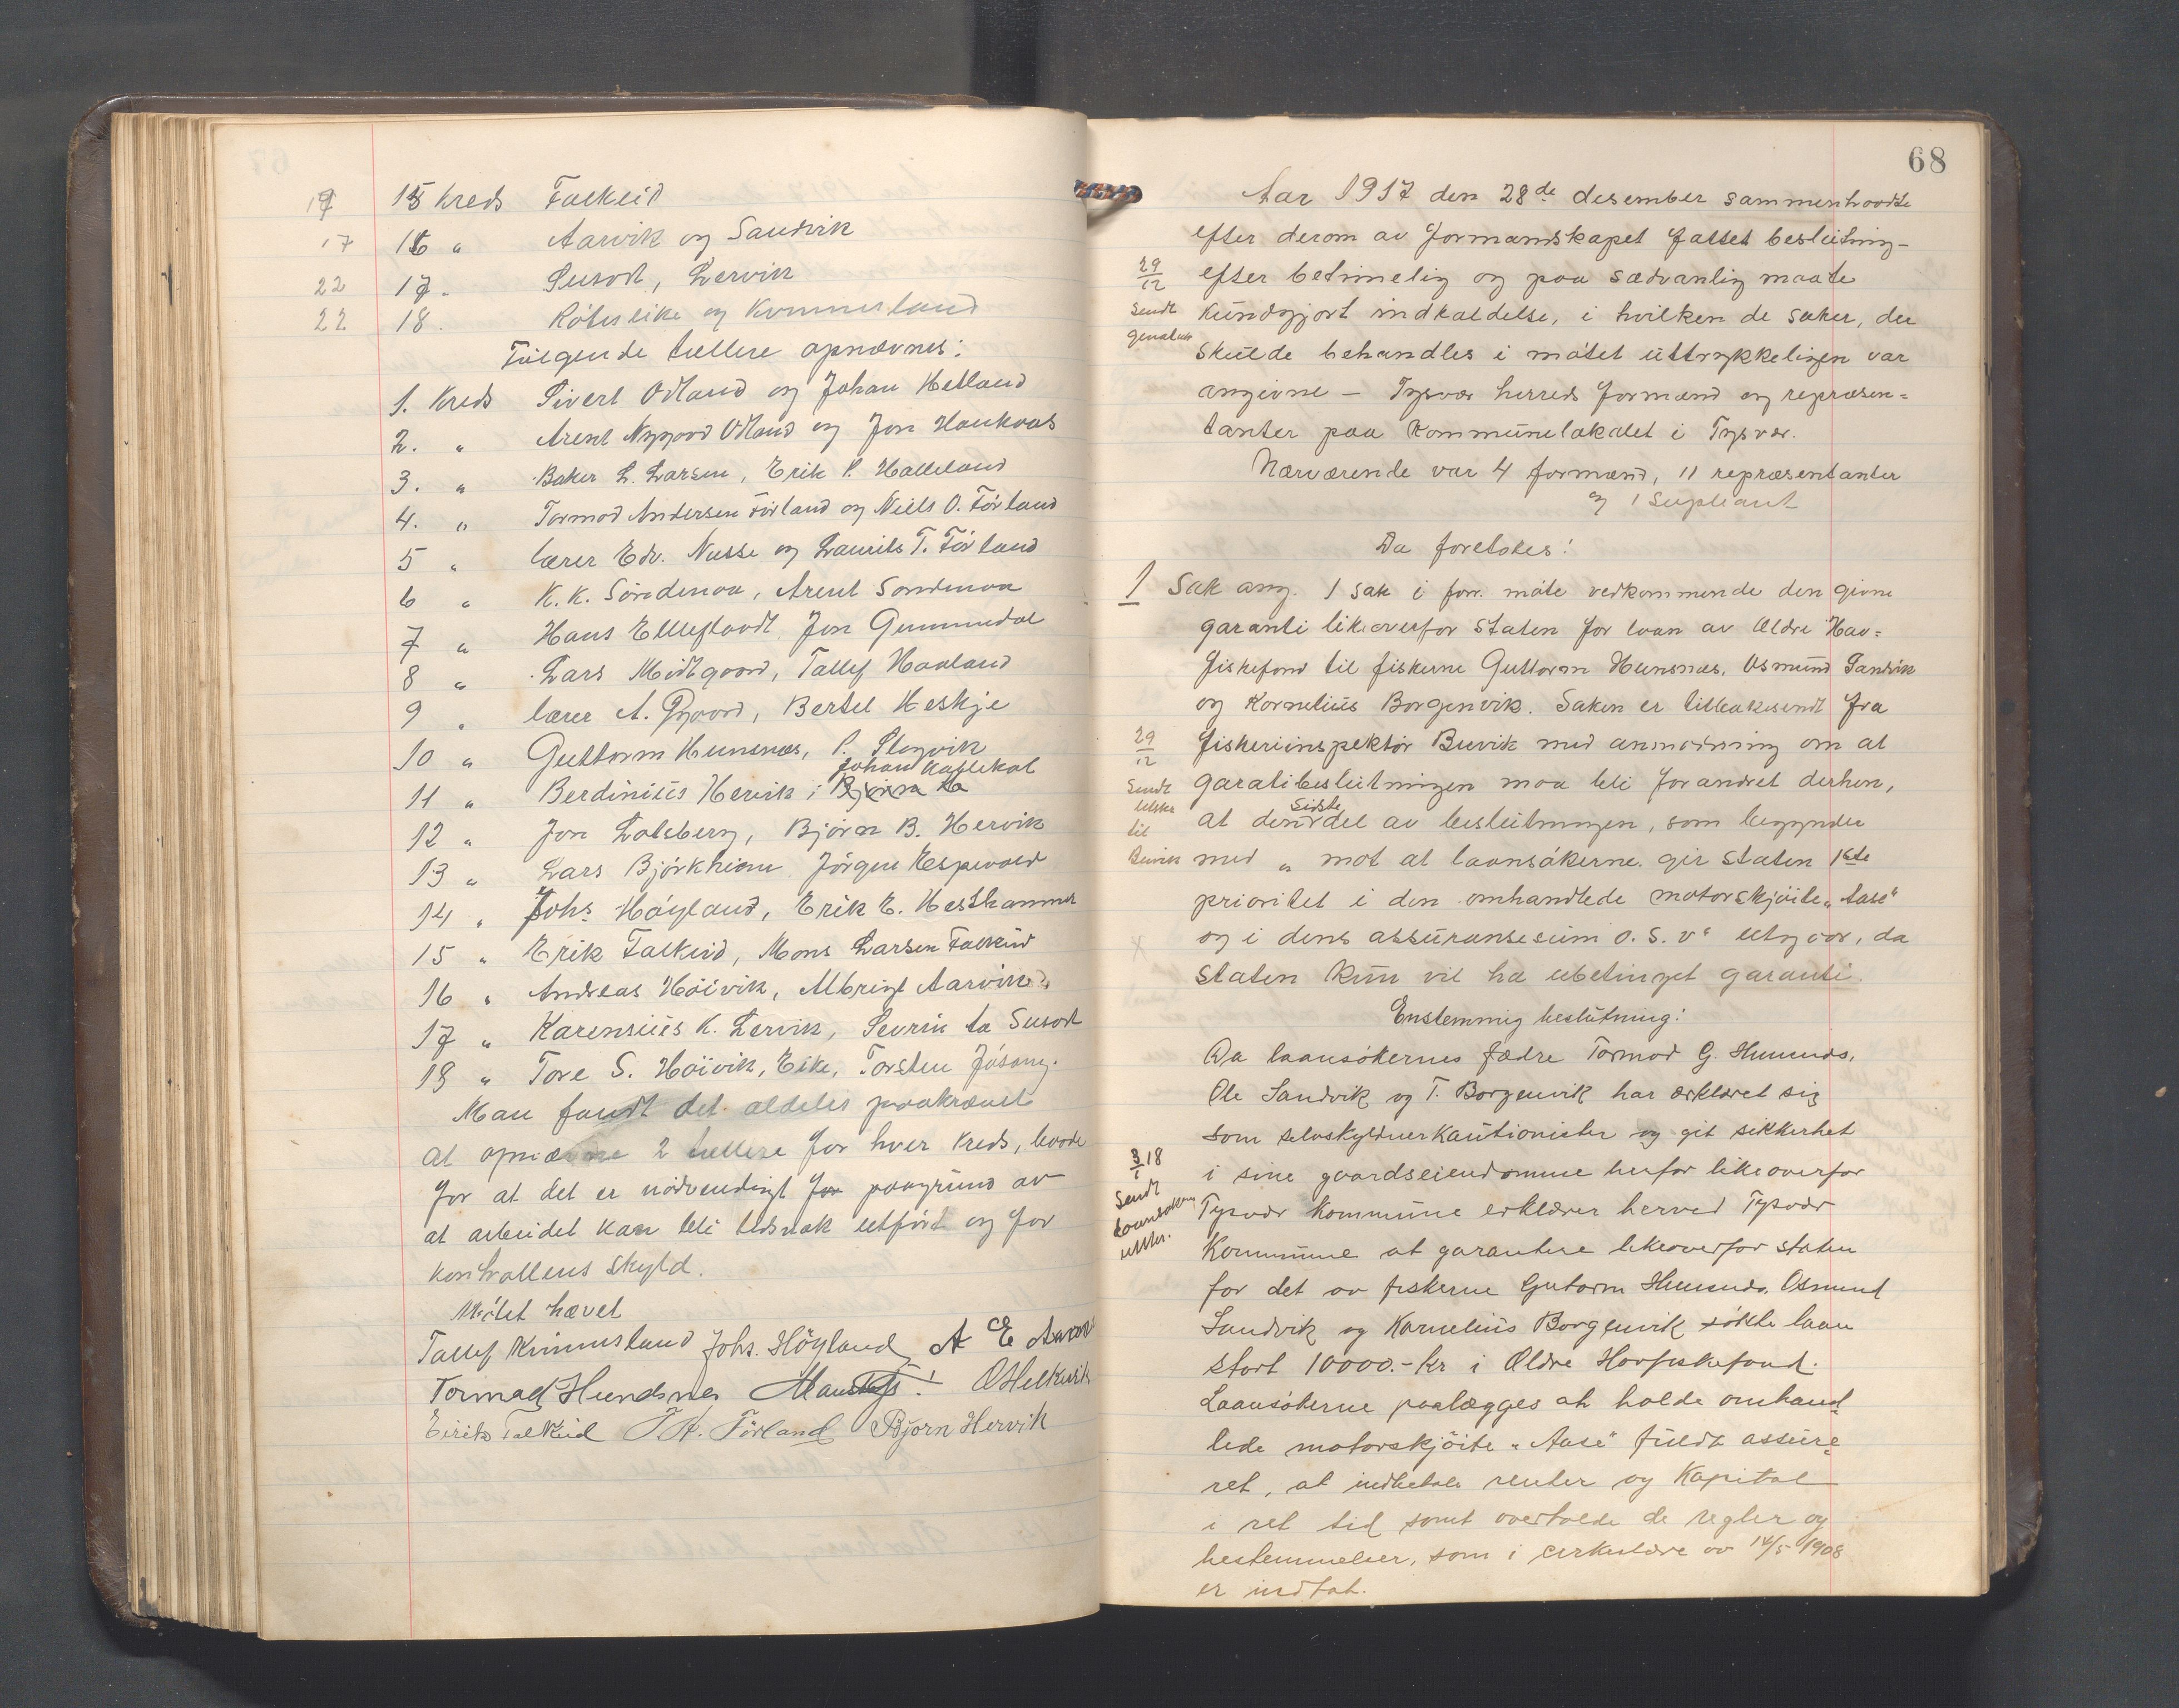 17 15 Kreds Falkeid
17 16 " Aarvik og Sandvik
22 17 " Susort, Lervik
22 18 " og Kvinnesland
Følgende tællere opnævnes:
1. Kreds Sivert Odland og Johan Hetland
2. " Arent Nygaard Odland og Jon Haukaas
3. " Baker L. Larsen, Erik P. Halleland
4. " Tormod Andersen Førland og Niels O. Førland
5 " lærer Edv. Nusse og Laurits T. Førland
6 " K. K. Sørdemoa, Arent Sørdemoa
7 " Hans Jon Gummedal
8 " Lars Midtgaard, Tallef Haaland
9 " lærer A. Bertel Heskje
10 " Guttorm Hunsnæs, P. Slogvik
Johan Kallekot
11 " Berdinius Hervik,
12 " Jon Lotsberg, Bjørn B. Hervik
13 " Lars Bjørkhiem Jørgen Espevold
14 " Johs Høyland, Erik E. Hesthammer
15 " Erik Falkeid, Mons Larsen Falkeid
16 " Andreas Høivik, Albrigt Aarvik
17 " Karensius K. Lervik, Sevrin ta Susort
18 " Tore S. Høivik, Eike, Torsten Jøsang.
Man fandt det aldeles paakrævet
at opnævne 2 tællere for hver kreds, baade
for at det er nødvendigt for paagrund av
at arbeidet kan bli tidsnok utført og for
kontrollens skyld.
Møtet hævet
Tallef Kvinnesland Johs. Høyland A E Aarvik
Tormod Hundsnes O Helkvik
Eirik Falkeid T. A. Førland Bjørn Hervik
68
Aar 1917 den 28de desember sammentraadte
efter derom av formandskapet fattet beslutning -
29/12 efter betimelig og paa sædvanlig maate
Sendt kundgjort indkaldelse, i hvilken de saker, der
skulde behandles i møtet uttrykkeligen var
angivne - Tysvær herreds formænd og repræsen=
tanter paa kommunelokalet i Tysvær.
Nærværende var 4 formænd, 11 repræsentanter
og 1 supleant
Da foretokes:
1 Sak ang. 1 sak i forr. møte vedkommende den givne
garanti likeoverfor Staten for laan av Ældre Hav=
fiskefond til fiskerne Guttorm Hunsnæs, Osmund Sandvik
og Kornelius Borgenvik. Saken er tilbakesendt fra
29/12 fiskeriinspektør Buvik med anmodning om at
Sendt garatibeslutningen maa bli forandret derhen,
utskr. at den sidste del av beslutningen, som begynder
til
Buvik med " mot at laansøkerne gir Staten 1ste
prioritet i den omhandlede motorskjøite "Aase"
og i dens assuransesum o. s. v" utgaar, da
Staten kun vil ha ubetinget garanti.
Enstemmig beslutning:
Da laansøkernes fædre Tormod G. Hunsnæs,
Ole Sandvik og T. Borgenvik har erklæret sig
som selvskyldnerkautionister og git sikkerhet
3/1 18 i sine gaardseiendomme herfor likeoverfor
Sendt Tysvær kommune erklærer herved Tysvær
laansøkerne
utskr. Kommune at garantere likeoverfor staten
for det av fiskerne Gutorm Hunsnæs, Osmund
Sandvik og Kornelius Borgenvik søkte laan
stort 10000.- kr i Ældre Havfiskefond.
Laansøkerne paalægges at holde omhand=
lede motorskjøite "Aase" fuldt assure=
ret, at indbetale renter og kapital
i ret tid samt overholde de regler og
bestemmelser, som i cirkulære av 14/5 1908
er indtat.